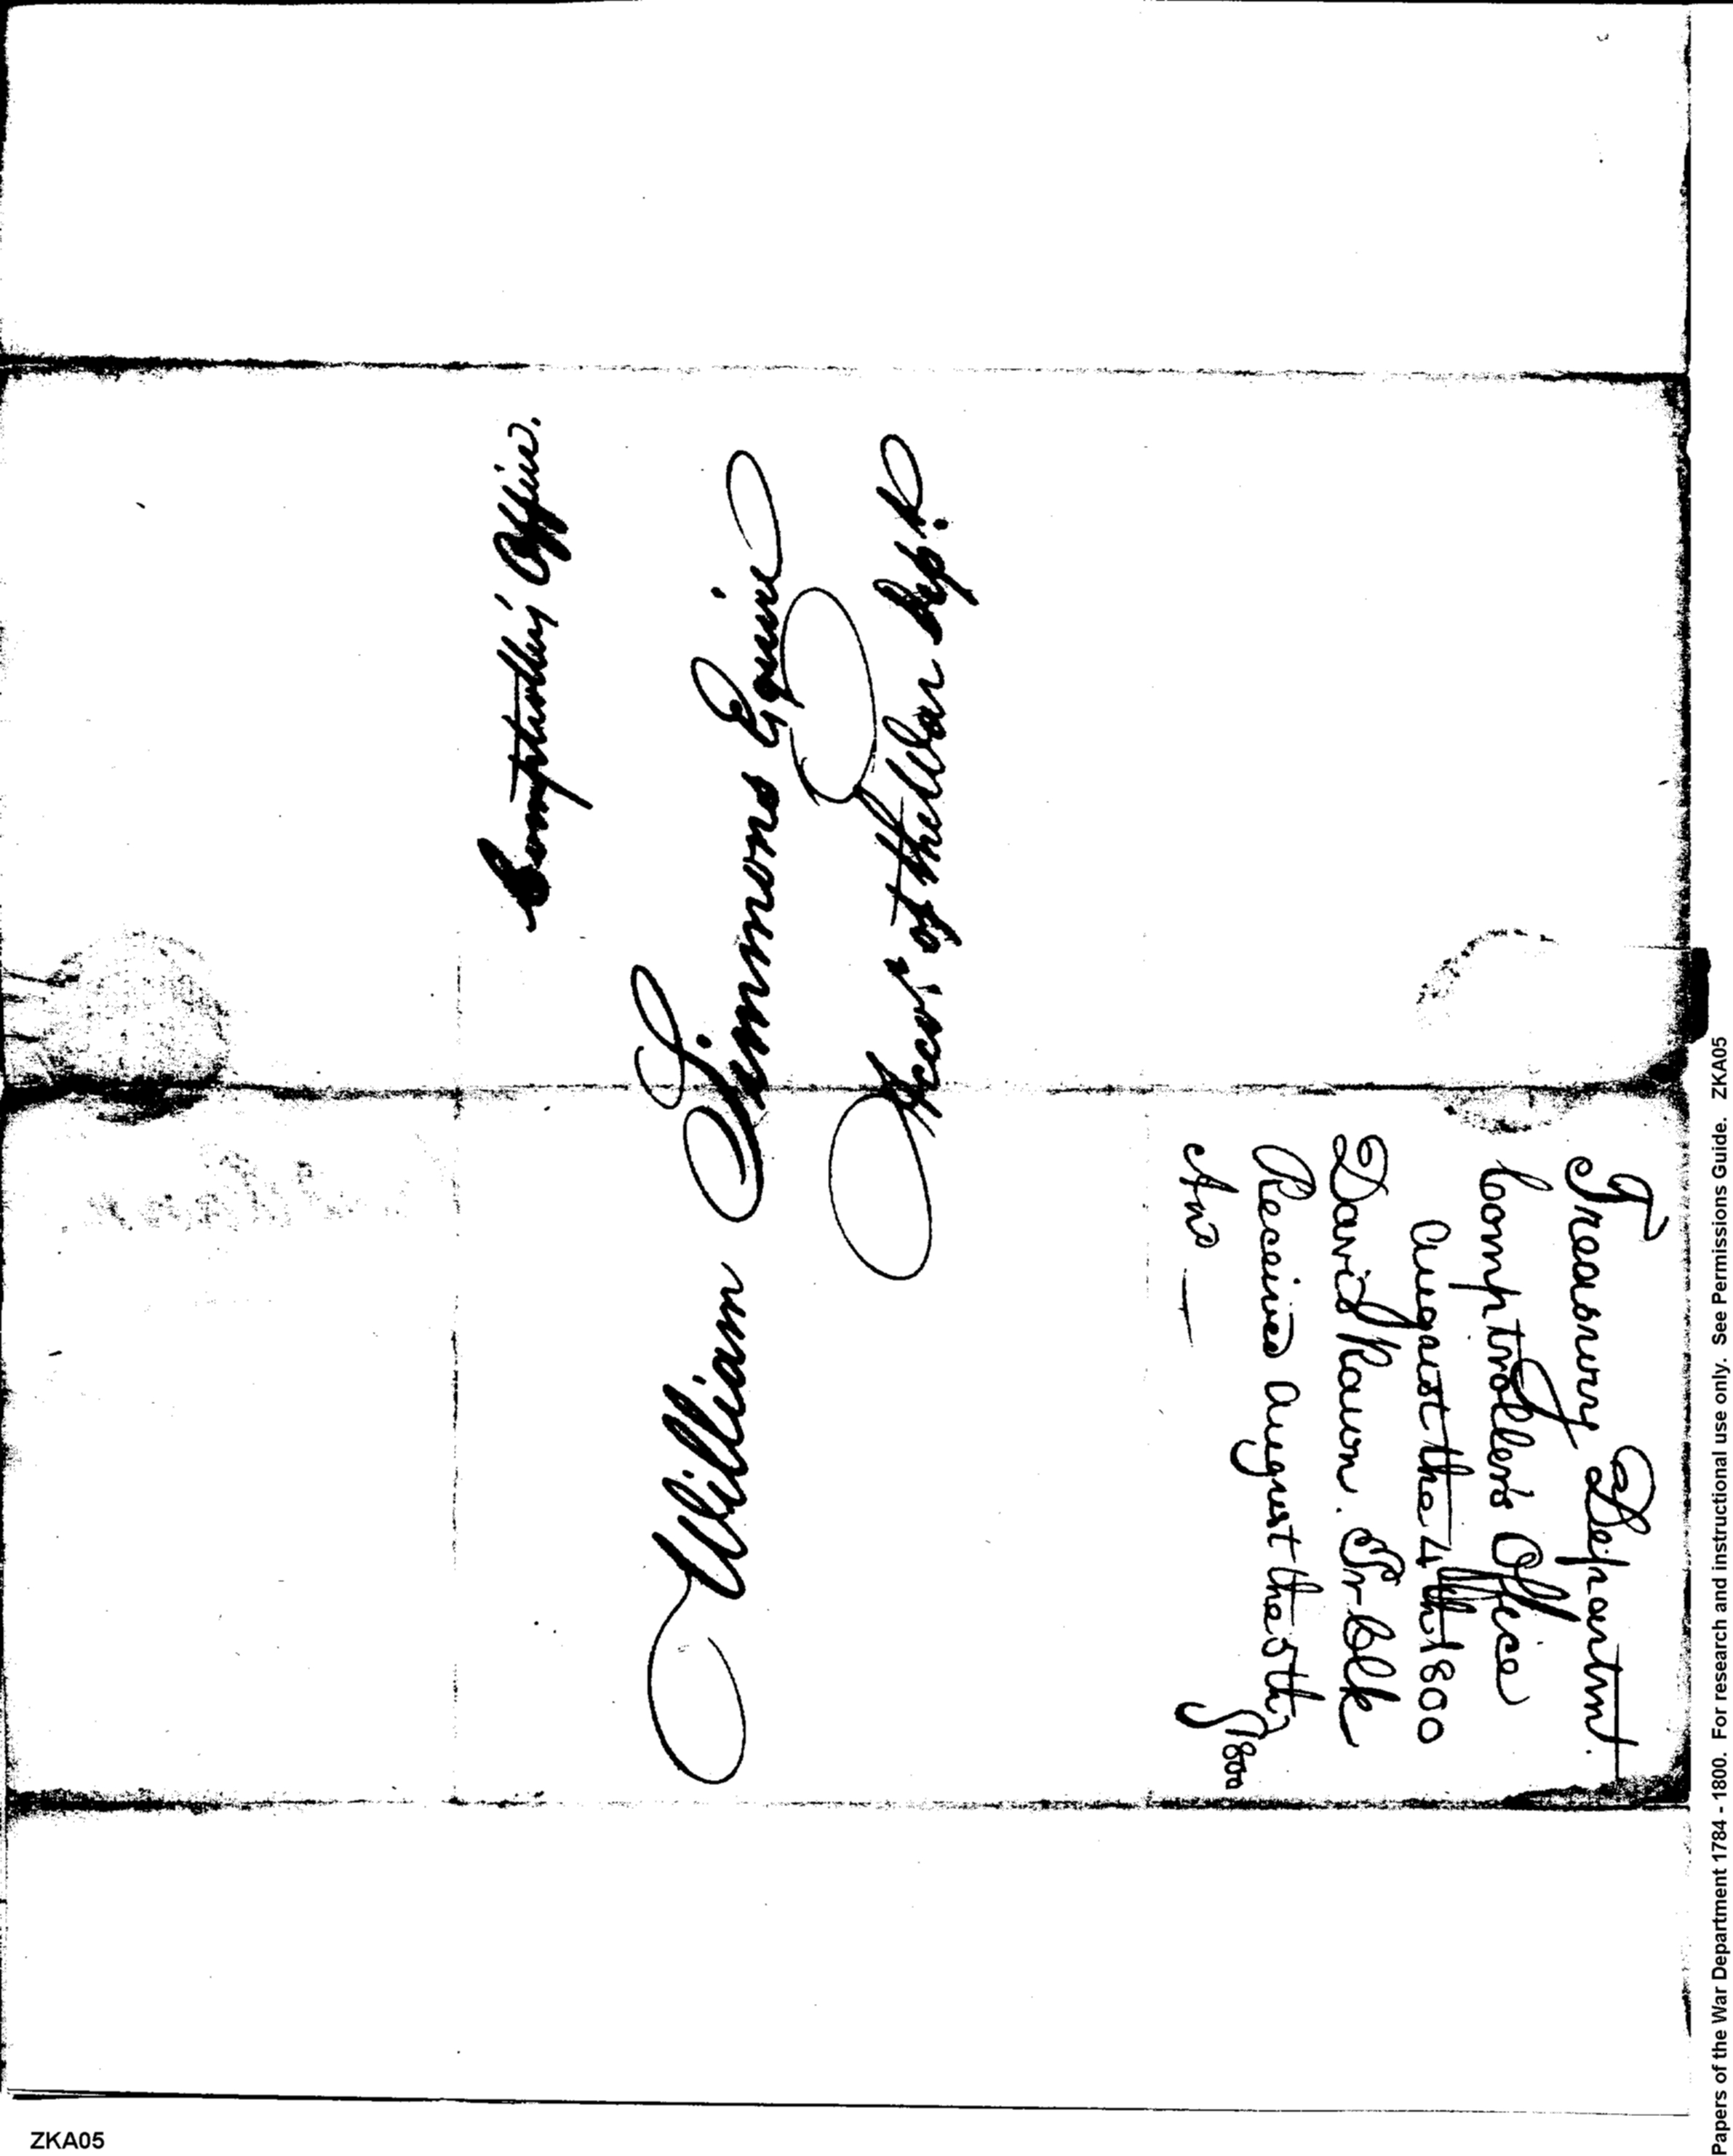 Comptrollers Office.
William Simmons Esquire
Acco.t of the War Dep.t
Treasury Departm.t
Comptroller's Office
August the 4th 1800
David Rawn. Pr Clk
Received August the 5th
1800
Ans
Papers of the War Department 1784 - 1800. For research and instructional use only. See Permissions Guide. ZKA05
ZKA05